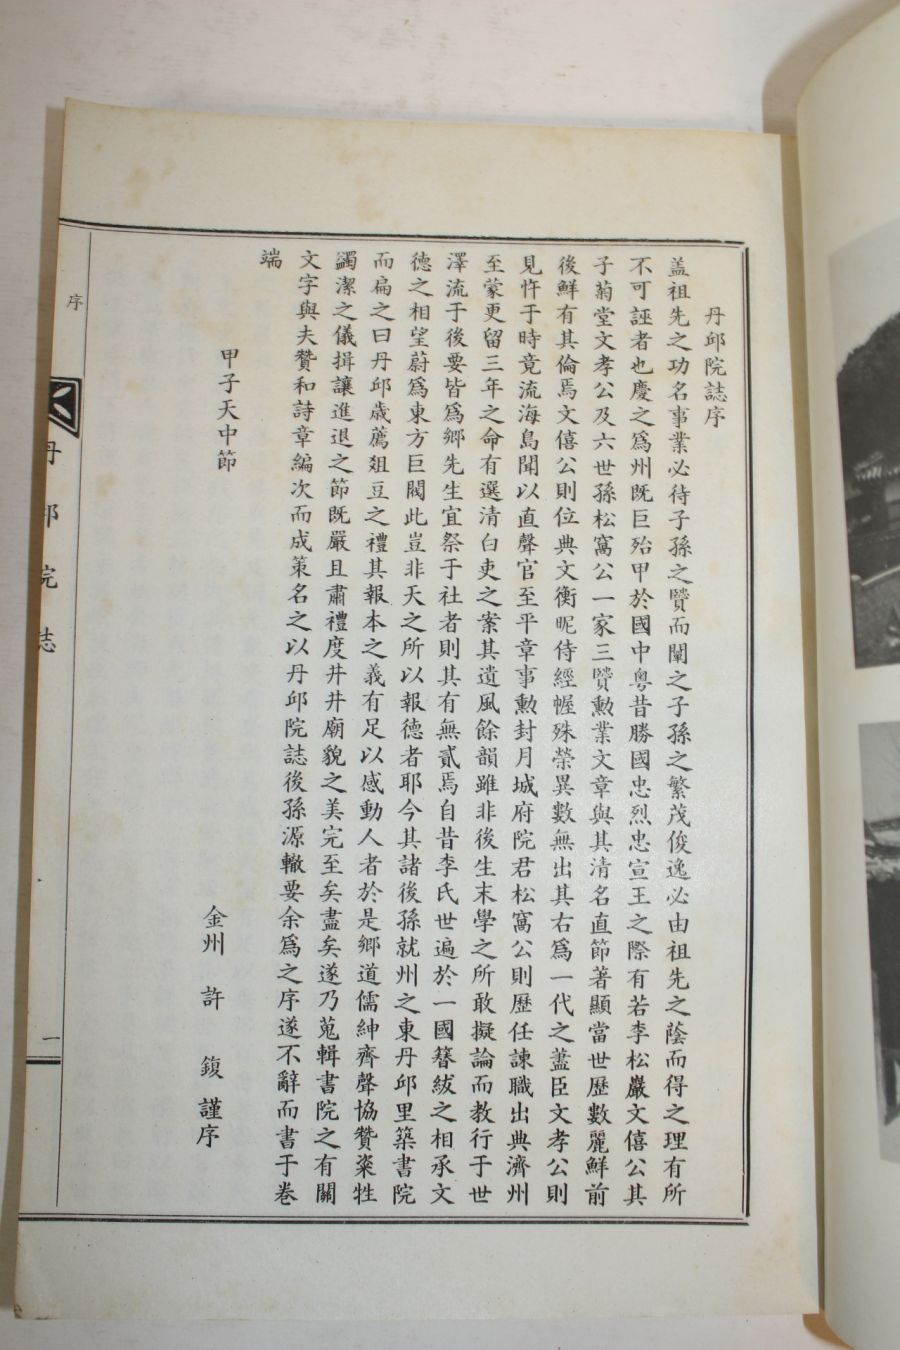 丹邱院誌序
盖祖先之功名事業必待子孫之賢而闡之子孫之繁茂俊逸必由祖先之蔭而得之理有所
不可誣者也慶之爲州既巨殆甲於國中粤昔勝國忠烈忠宣王之際有若李松巖文僖公其
子菊堂文孝公及六世孫松窩公一家三賢勲業文章與其清名直節著顯當世歷數麗鮮前
後鮮有其倫焉文僖公則位典文衡昵侍經幄殊榮異數無出其右爲一代之藎臣文孝公則
見忤于時竟流海島聞以直聲官至平章事勲封月城府院君松窩公則歷任諫職出典濟州
至蒙更留三年之命有選清白吏之案其遺風餘韻雖非後生末學之所敢擬論而教行于世
澤流于後要皆爲鄉先生宜祭于社者則其有無貳焉自昔李氏世遍於一國簪紱之相承文
德之相望蔚爲東方巨閥此豈非天之所以報德者耶今其諸後孫就州之東丹邱里築書院
而扁之曰丹邱歲薦俎豆之禮其報本之義有足以感動人者於是鄉道儒紳齊聲協贊粢牲
蠲潔之儀揖讓進退之節既嚴且肅禮度井井廟貌之美完至矣盡矣遂乃蒐輯書院之有關
文字與夫贊和詩章編次而成策名之以丹邱院誌後孫源轍要余爲之序遂不辭而書于卷
端
甲子天中節
金州　許　鍑　謹序
序
丹邱院誌
一